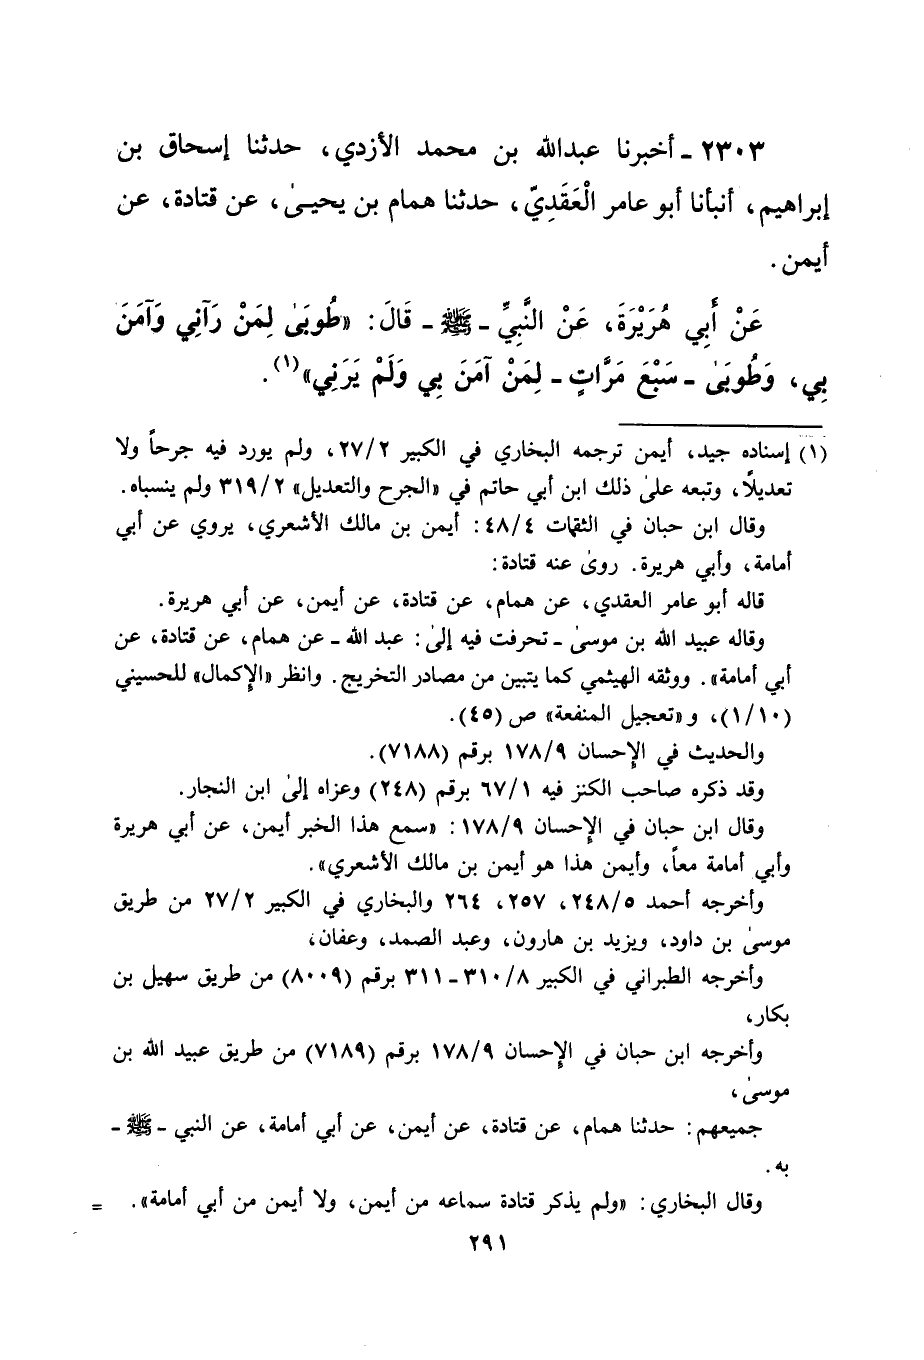 ٢٣٠٣ ـ أخبرنا عبدالله بن محمد الأزدي، حدثنا إسحاق بن
إبراهيم، أنبأنا أبو عامر الْعَقَدِيّ، حدثنا همام بن يحيىٰ، عن قتادة، عن
أيمن.
عَنْ أَبِي هُرَيْرَةَ، عَنْ النَّبِيِّ ـ ﷺ ـ قَالَ: «طُوبَىٰ لِمَنْ رَآنِي وَآمَنَ
بِي، وَطُوبَىٰ ـ سَبْعَ مَرَّاتٍ ـ لِمَنْ آمَنَ بِي وَلَمْ يَرَنِي»(١).
(١) إسناده جيد، أيمن ترجمه البخاري في الكبير ٢٧/٢، ولم يورد فيه جرحاً ولا
تعديلًا، وتبعه علىٰ ذلك ابن أبي حاتم في «الجرح والتعديل» ٣١٩/٢ ولم ينسباه.
وقال ابن حبان في الثقات ٤٨/٤: أيمن بن مالك الأشعري، يروي عن أبي
أمامة، وأبي هريرة. روىٰ عنه قتادة:
قاله أبو عامر العقدي، عن همام، عن قتادة، عن أيمن، عن أبي هريرة.
وقاله عبيد الله بن موسىٰ ـ تحرفت فيه إلىٰ: عبد الله ـ عن همام، عن قتادة، عن
أبي أمامة». ووثقه الهيثمي كما يتبين من مصادر التخريج. وانظر «الإكمال» للحسيني
(١/١٠)، و «تعجيل المنفعة» ص (٤٥).
والحديث في الإحسان ١٧٨/٩ برقم (٧١٨٨).
وقد ذكره صاحب الكنز فيه ٦٧/١ برقم (٢٤٨) وعزاه إلىٰ ابن النجار.
وقال ابن حبان في الإحسان ١٧٨/٩: «سمع هذا الخبر أيمن، عن أبي هريرة
وأبي أمامة معاً، وأيمن هذا هو أيمن بن مالك الأشعري».
وأخرجه أحمد ٢٤٨/٥، ٢٥٧، ٢٦٤ والبخاري في الكبير ٢٧/٢ من طريق
موسىٰ بن داود، ويزيد بن هارون، وعبد الصمد، وعفان،
وأخرجه الطبراني في الكبير ٣١٠/٨ ـ ٣١١ برقم (٨٠٠٩) من طريق سهيل بن
بكار،
وأخرجه ابن حبان في الإحسان ١٧٨/٩ برقم (٧١٨٩) من طريق عبيد الله بن
موسىٰ،
جميعهم: حدثنا همام، عن قتادة، عن أيمن، عن أبي أمامة، عن النبي ـ ﷺ ـ
به.
وقال البخاري: «ولم يذكر قتادة سماعه من أيمن، ولا أيمن من أبي أمامة». =
٢٩١